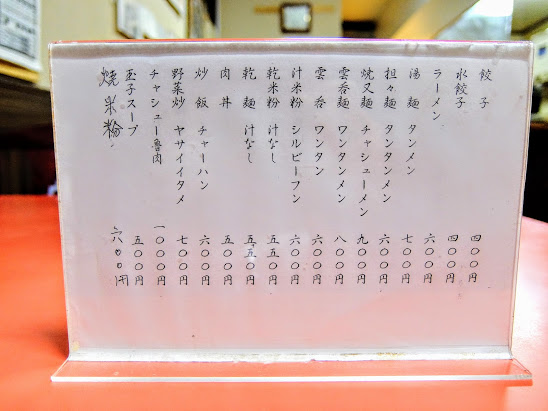 餃子 四〇〇円
水餃子 四〇〇円
ラーメン 六〇〇円
湯麺 タンメン 七〇〇円
担々麺 タンタンメン 六〇〇円
焼又麺 チャシューメン 九〇〇円
雲呑麺 ワンタンメン 八〇〇円
雲呑 ワンタン 六〇〇円
汁米粉 シルビーフン 六〇〇円
乾米粉 汁なし 五五〇円
乾麺 汁なし 五五〇円
肉丼 五〇〇円
炒飯 チャーハン 六〇〇円
野菜炒 ヤサイイタメ 七〇〇円
チャシュー魯肉 一〇〇〇円
玉子スープ 五〇〇円
焼米粉 六〇〇円